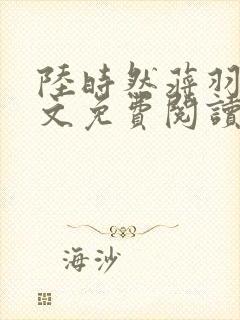 陸時然蔣羽
文免費閱讀
海沙